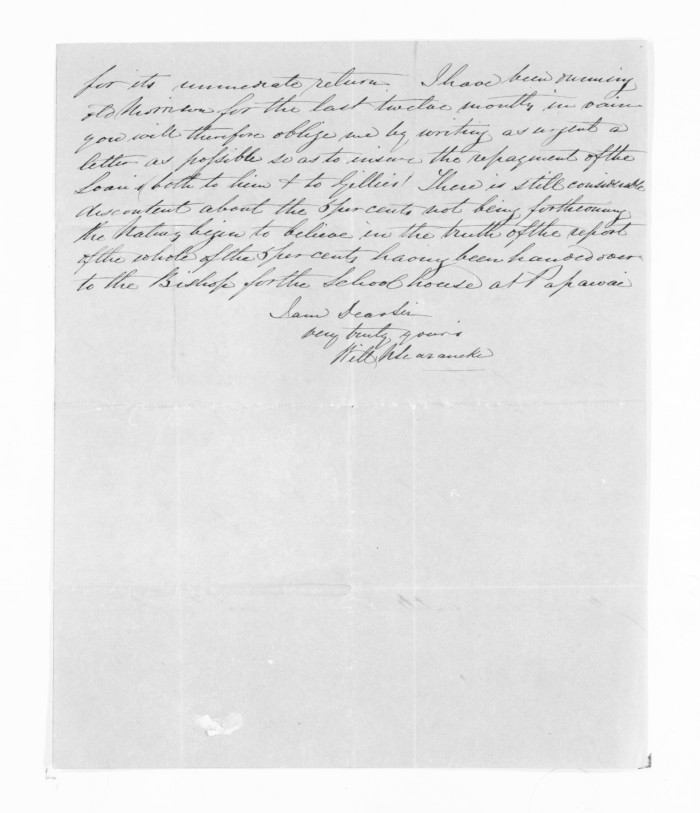 for its immediate return. I have been dunning
old Morrison for the last twelve months in vain
you will therefore oblige me by writing as urgent a
letter as possible so as to insure the repayment of the
Loan (both to him & to Gillies! There is still considerable
discontent about the 5 per cents not being forthcoming
the Natives begin to believe in the truth of the report
of the whole of the 5 per cents having been handed over
to the Bishop for the School house at Papawai
I am Dear Sir
very truly yours
Will N Searancke